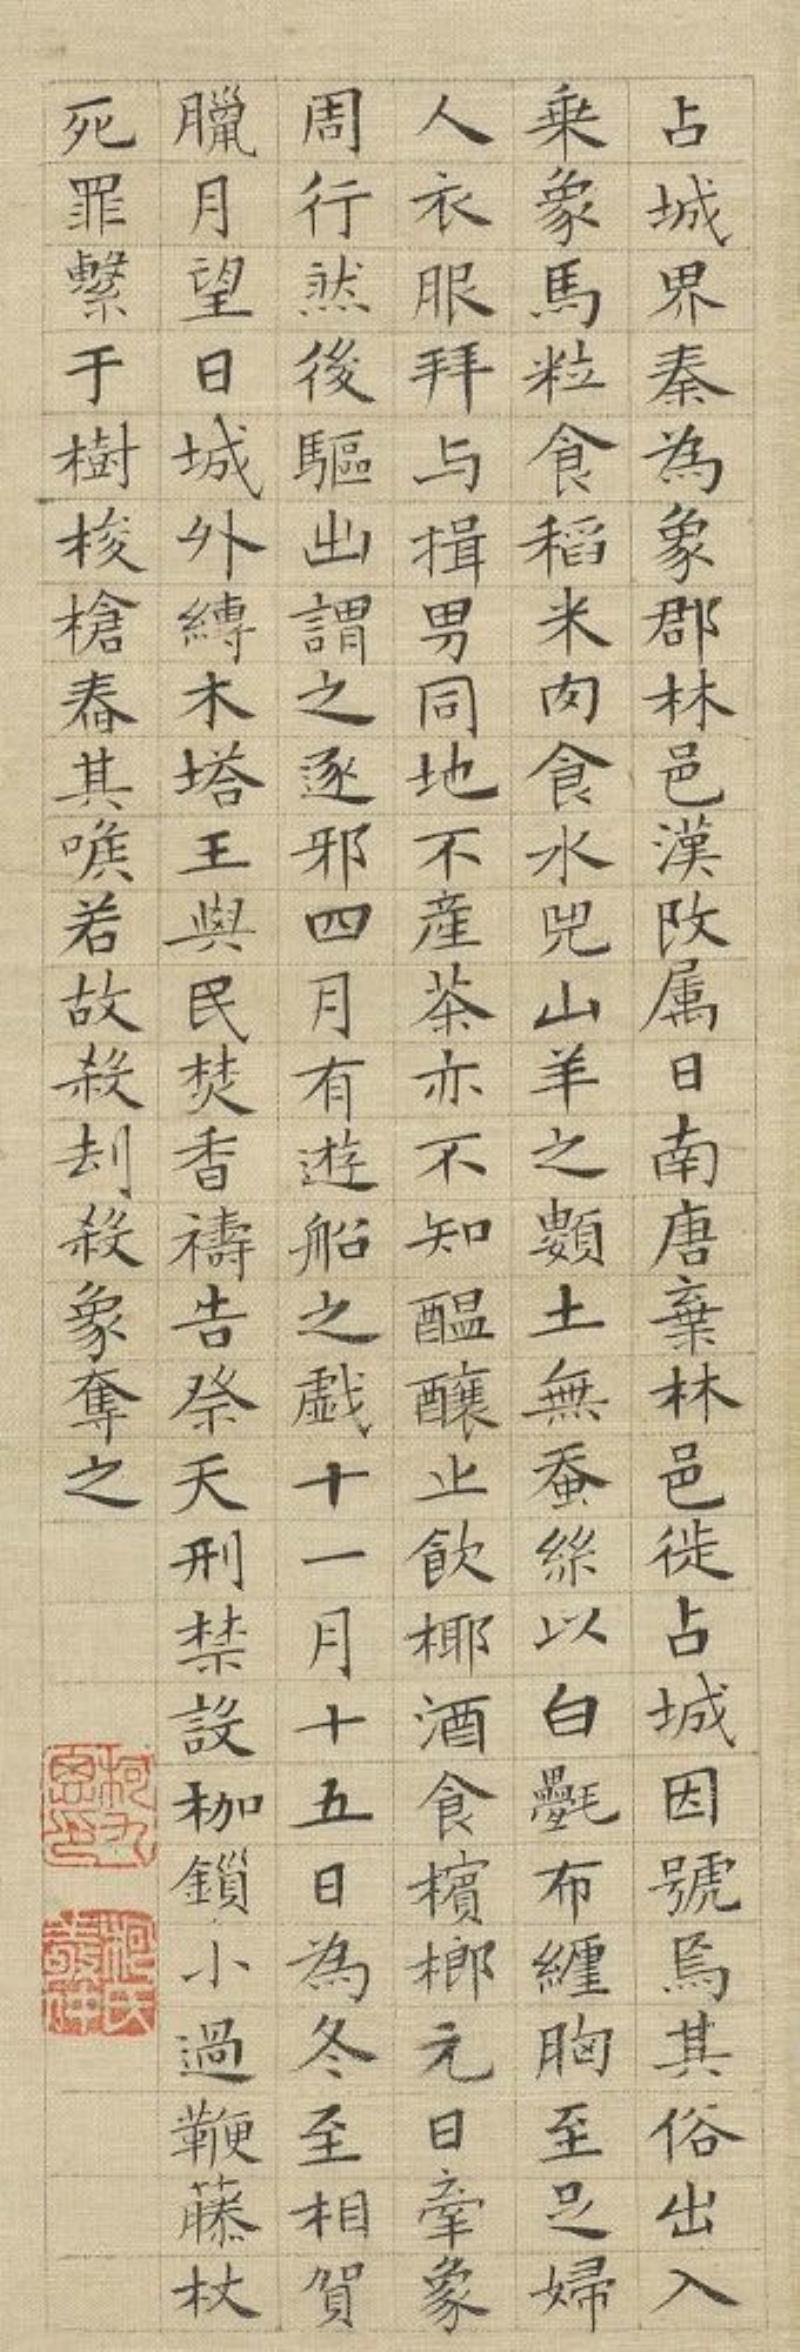 占城界秦為象郡林邑漢改属日南唐棄林邑徙占城因號焉其俗出入
乗象馬粒食稻米肉食水兕山羊之類土無蚕絲以白氎布纏胸至足婦
人衣服拜与揖男同地不産茶亦不知醖釀止飲椰酒食檳榔元日牽象
周行然後驅出謂之逐邪四月有遊船之戯十一月十五日為冬至相賀
臘月望日城外縛木塔王與民焚香禱告祭天刑禁設枷鎖小過鞭藤杖
死罪繫于樹梭槍舂其喉若故殺刦殺象奪之
柯九思印
柯氏敬仲